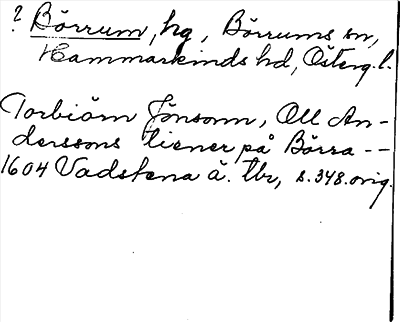 ? Börrum, hg, Börrums sn,
Hammarkinds hd, Österg. l.
Torbiörn Jönsonn, Oll An-
derssons tiener på Börra --
1604 Vadstena ä. tbr, s. 348. orig.